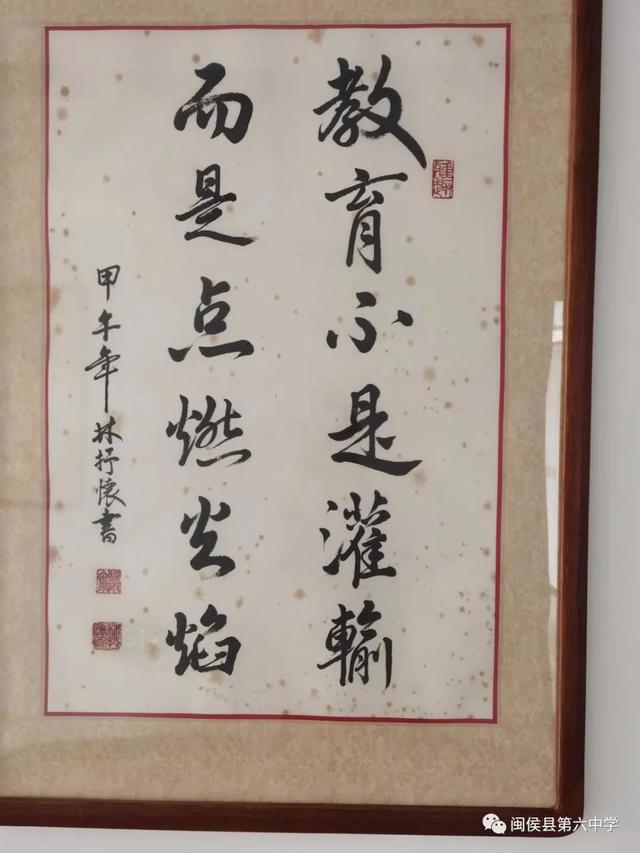 教育不是灌輸
而是点燃火焰
甲午年林抒懷書
闽侯县第六中学